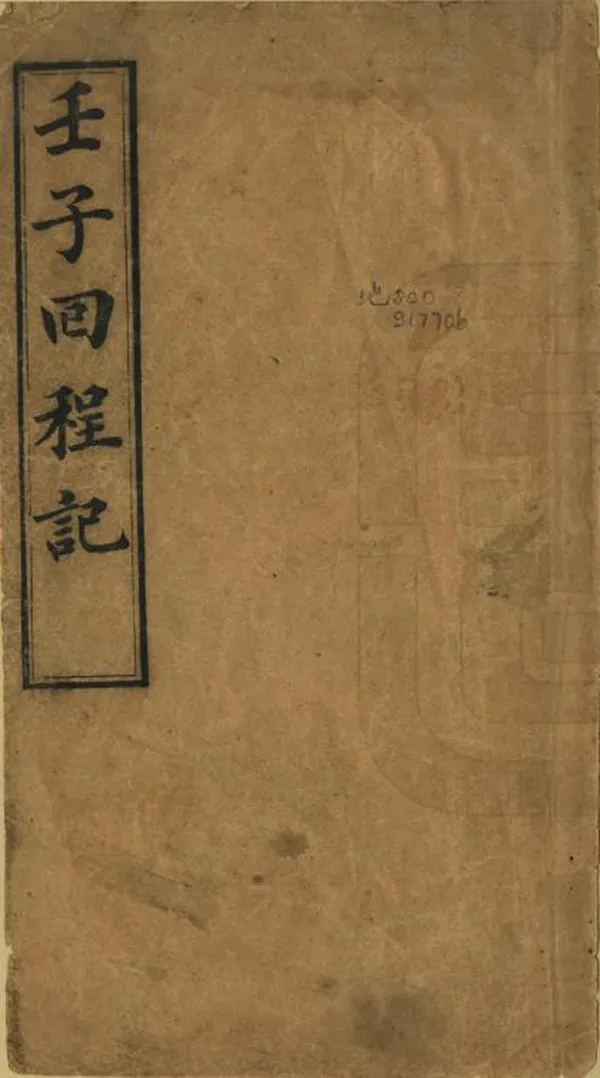 壬子回程記
地800
917706